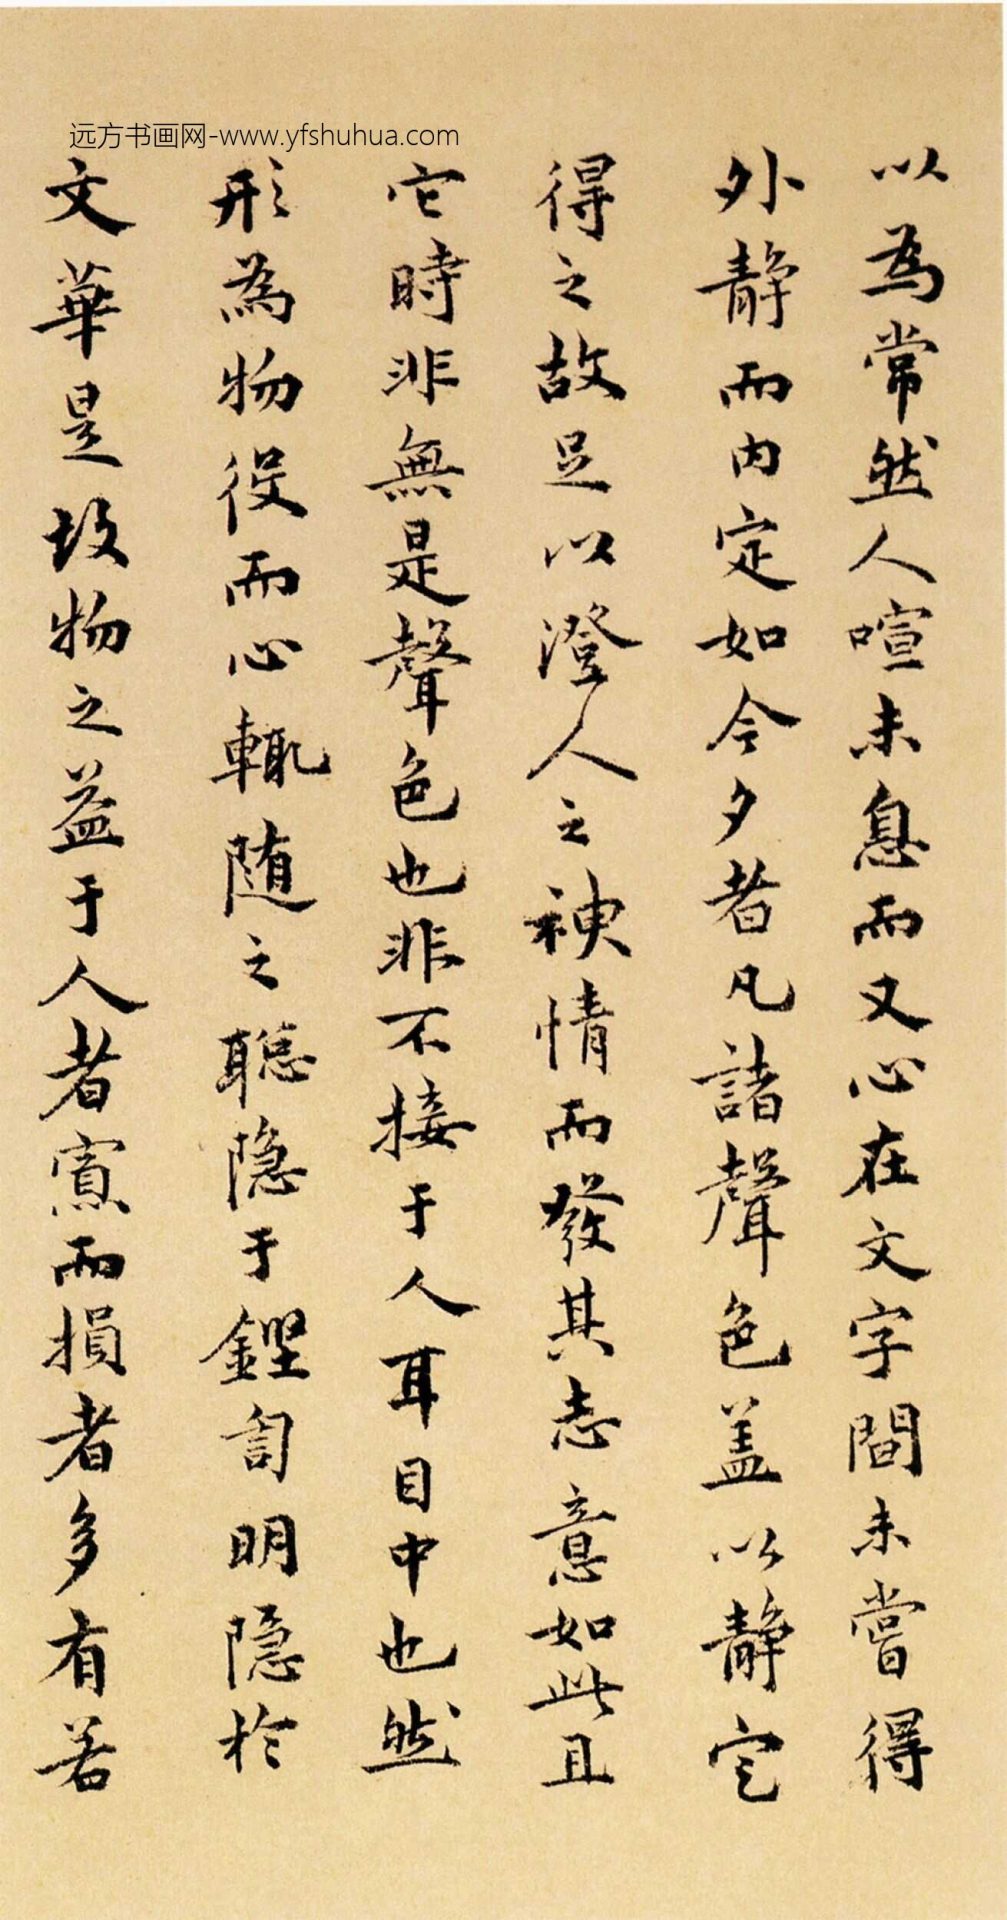 远方书画网-www.yfshuhua.com
以為常然人喧未息而又心在文字間未嘗得
外静而内定如今夕者凡諸聲色盖以静定
得之故足以澄人之神情而發其志意如此且
它時非無是聲色也非不接于人耳目中也然
形為物役而心輒随之聪隐于鏗訇明隐於
文華是故物之益于人者寡而損者多有若